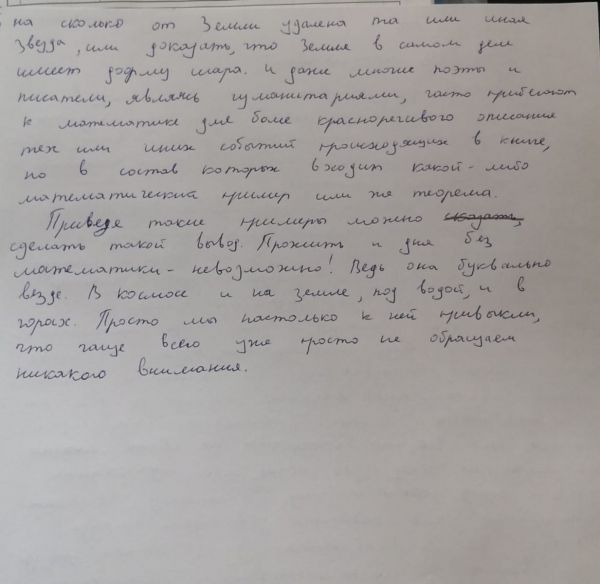 на сколько от Земли удалена та или иная
звезда, или доказать, что Земля в самом деле
имеет форму шара. И даже многие поэты и
писатели, являясь гуманитариями, часто прибегают
к математике для более красноречивого описания
тех или иных событий происходящих в книге,
но в состав которых входит какой-либо
математический пример или же теорема.
Приведя такие примеры можно сказать,
сделать такой вывод. Прожить и дня без
математики - невозможно! Ведь она буквально
везде. В космосе и на земле, под водой, и в
горах. Просто мы настолько к ней привыкли,
что чаще всего уже просто не обращаем
никакого внимания.